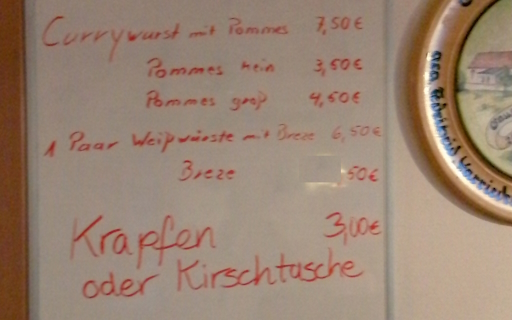 Currywurst mit Pommes 7,50€
Pommes klein 3,50€
Pommes groß 4,50€
1 Paar Weißwürste mit Breze 6,50€
Breze ,50€
Krapfen 3,00€
oder Kirschtasche